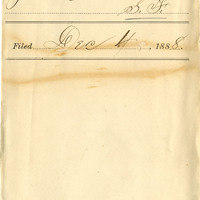 S. F.
Filed Dec 4, 1888.